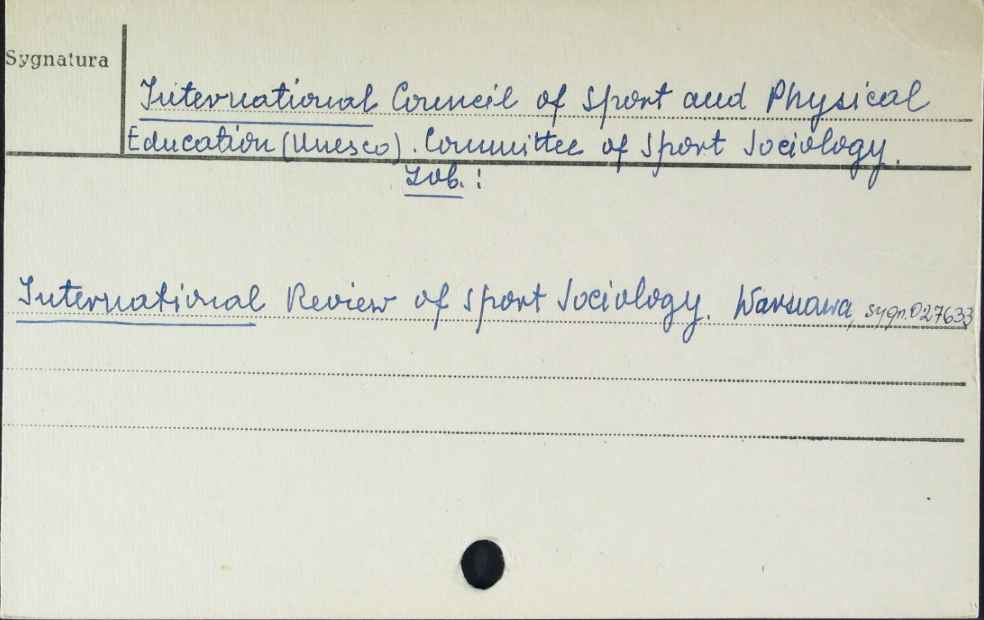 Sygnatura
International Council of Sport and Physical
Education (Unesco). Committee of Sport Sociology.
Zob.:
International Review of Sport Sociology. Warszawa, sygn. 027633